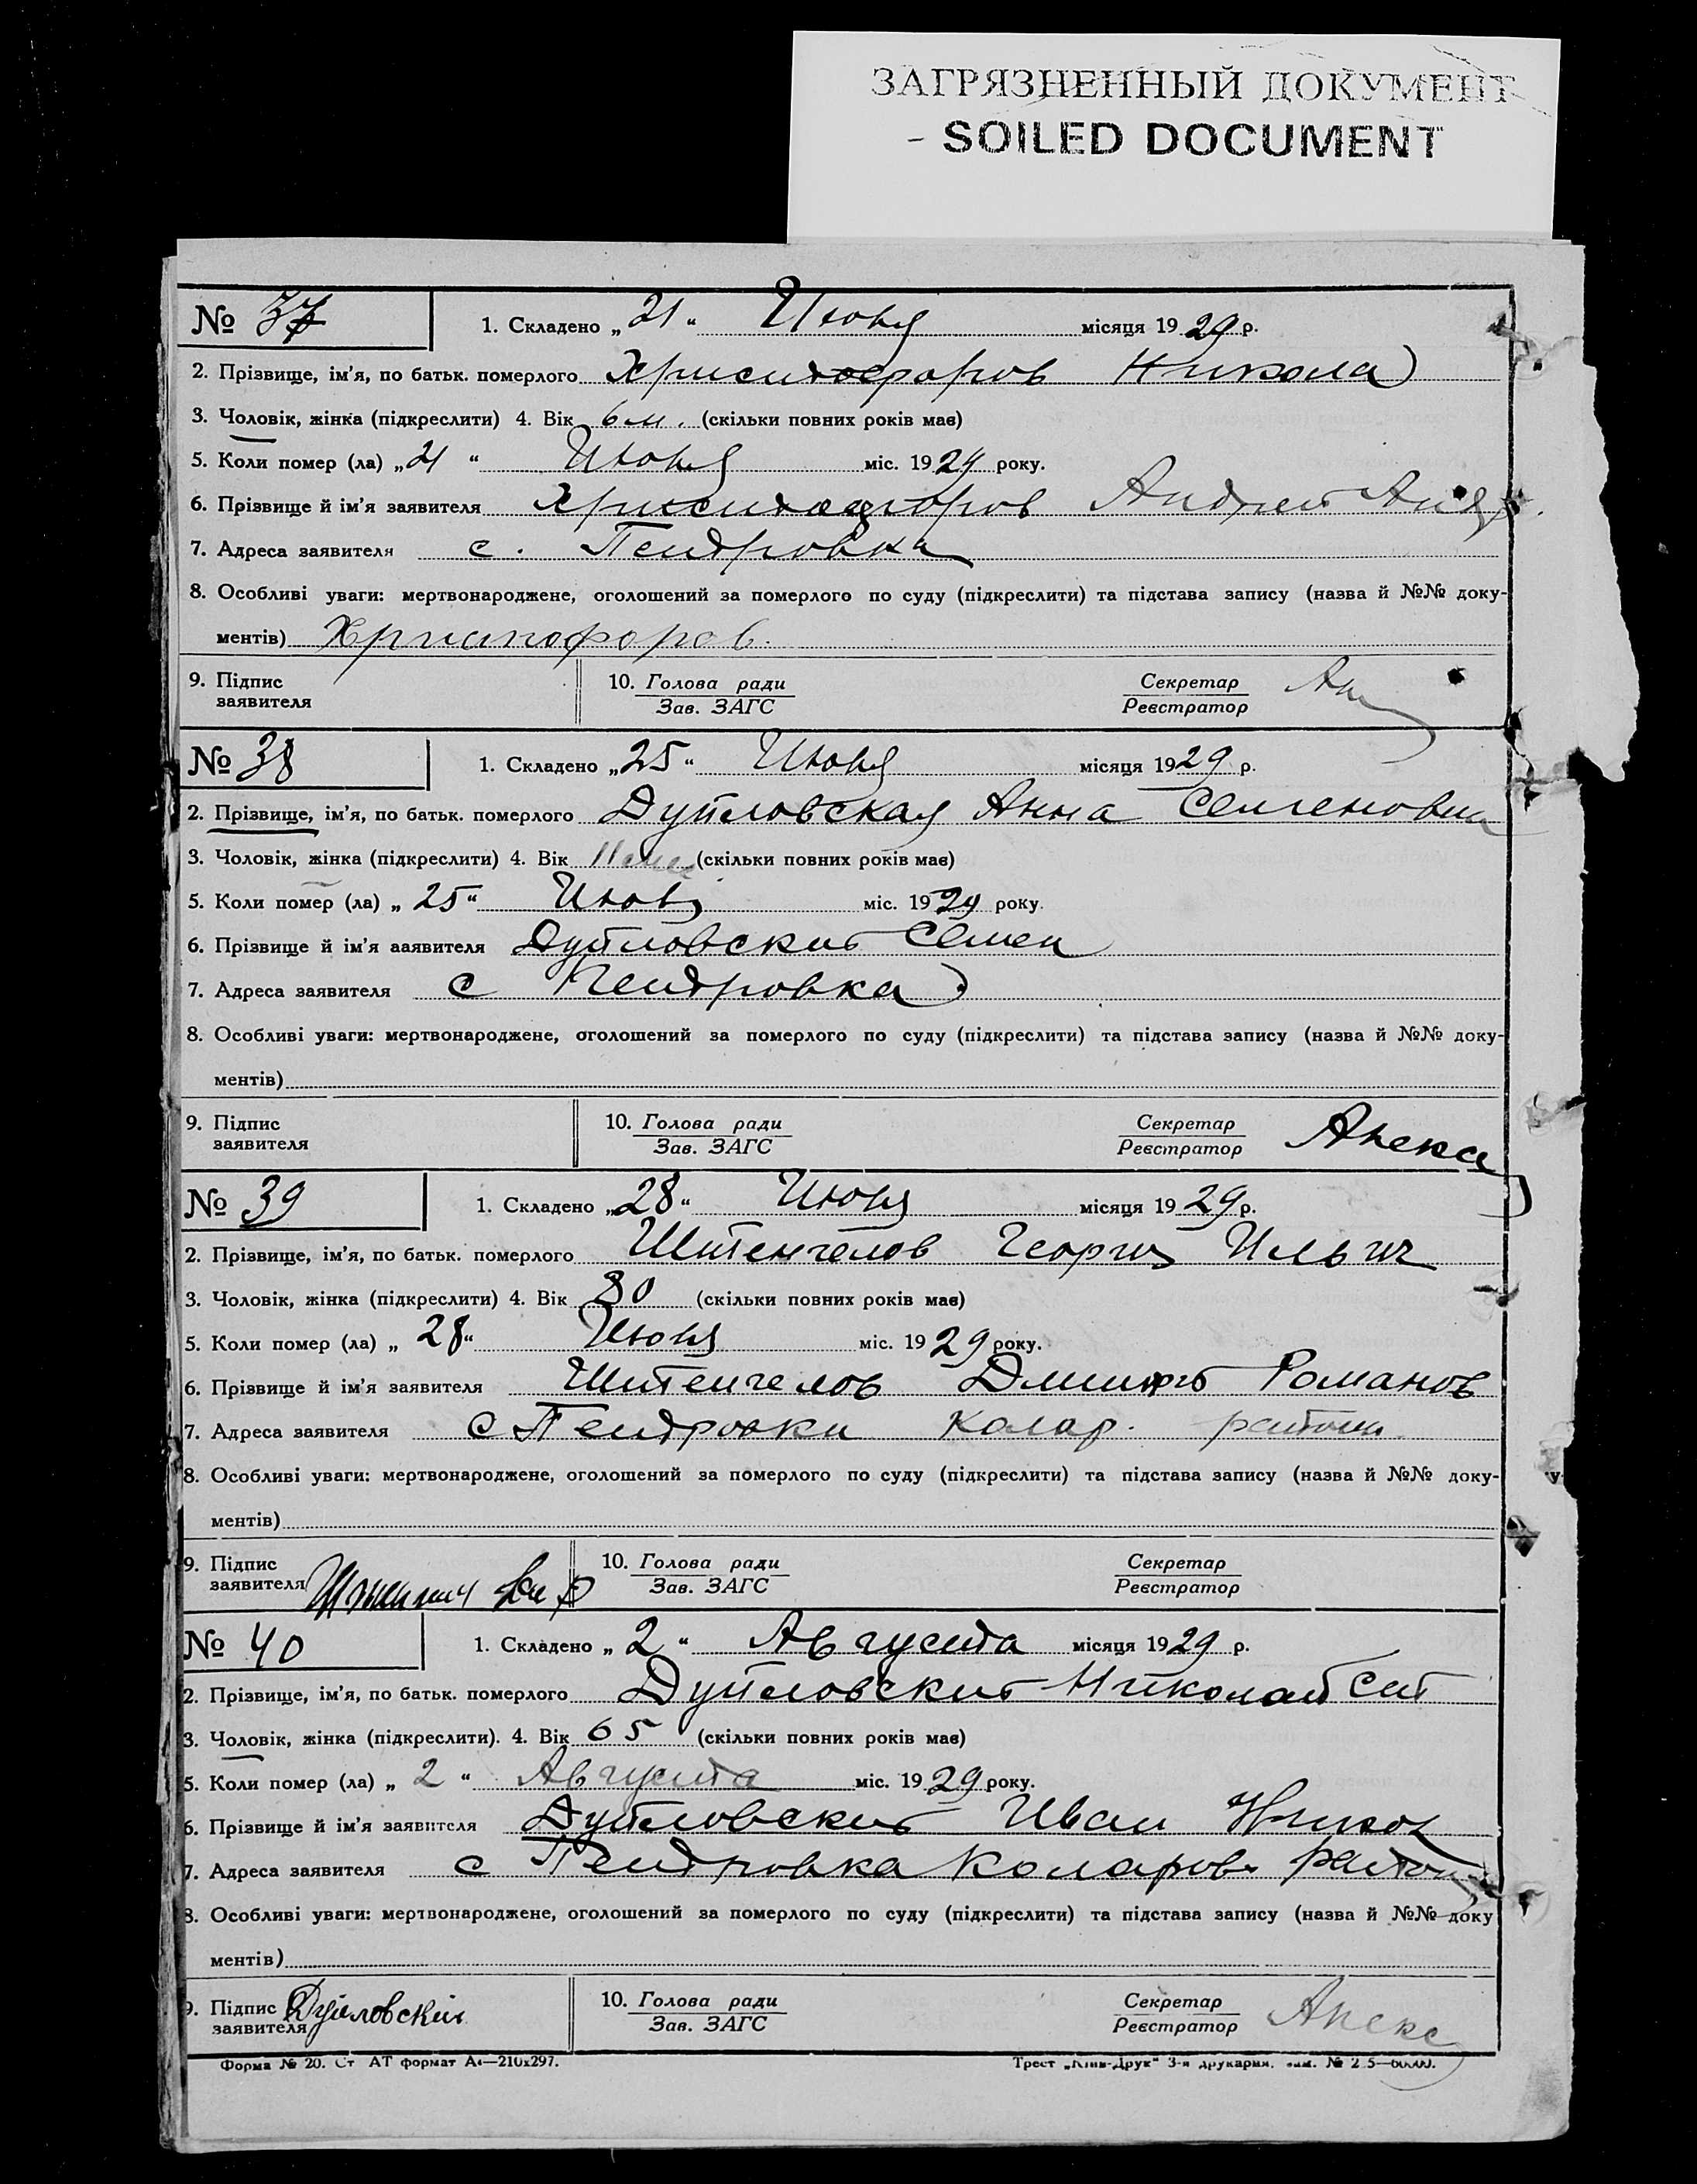 ЗАГРЯЗНЕННЫЙ ДОКУМЕНТ
- SOILED DOCUMENT
№ 37 1. Складено „21“ Июля місяця 1929 р.
2. Прізвище, ім'я, по батьк. померлого Христофоров Никола
3. Чоловік, жінка (підкреслити) 4. Вік 6 м. (скільки повних років має)
5. Коли помер (ла) „21“ Июля міс. 1929 року.
6. Прізвище й ім'я заявителя Христофоров Андрей Андр.
7. Адреса заявителя с. Петровка
8. Особливі уваги: мертвонароджене, оголошений за померлого по суду (підкреслити) та підстава запису (назва й №№ доку-
ментів) Христофоров.
9. Підпис заявителя 10. Голова ради Зав. ЗАГС Секретар Реєстратор
№ 38 1. Складено „25“ Июля місяця 1929 р.
2. Прізвище, ім'я, по батьк. померлого Дуйловская Анна Семеновна
3. Чоловік, жінка (підкреслити) 4. Вік (скільки повних років має)
5. Коли помер (ла) „25“ Июля міс. 1929 року.
6. Прізвище й ім'я заявителя Дуйловский Семен
7. Адреса заявителя с Петровка
8. Особливі уваги: мертвонароджене, оголошений за померлого по суду (підкреслити) та підстава запису (назва й №№ доку-
ментів)
9. Підпис заявителя 10. Голова ради Зав. ЗАГС Секретар Реєстратор
№ 39 1. Складено „28“ Июля місяця 1929 р.
2. Прізвище, ім'я, по батьк. померлого Штенгелов Георги Ильич
3. Чоловік, жінка (підкреслити) 4. Вік 80 (скільки повних років має)
5. Коли помер (ла) „28“ Июля міс. 1929 року.
6. Прізвище й ім'я заявителя Штенгелов Дмитрий Романов
7. Адреса заявителя с Петровки Колар. района
8. Особливі уваги: мертвонароджене, оголошений за померлого по суду (підкреслити) та підстава запису (назва й №№ доку-
ментів)
9. Підпис заявителя 10. Голова ради Зав. ЗАГС Секретар Реєстратор
№ 40 1. Складено „2“ Августа місяця 1929 р.
2. Прізвище, ім'я, по батьк. померлого Дуйловский Николай
3. Чоловік, жінка (підкреслити). 4. Вік 65 (скільки повних років має)
5. Коли помер (ла) „2“ Августа міс. 1929 року.
6. Прізвище й ім'я заявителя Дуйловский Иван Никол
7. Адреса заявителя с Петровка Коларов. района
8. Особливі уваги: мертвонароджене, оголошений за померлого по суду (підкреслити) та підстава запису (назва й №№ доку
ментів)
9. Підпис заявителя Дуйловский 10. Голова ради Зав. ЗАГС Секретар Реєстратор
Форма № 20. Ст АТ формат А4—210x297. Трест „Київ-Друк“ 3-я друкарня.